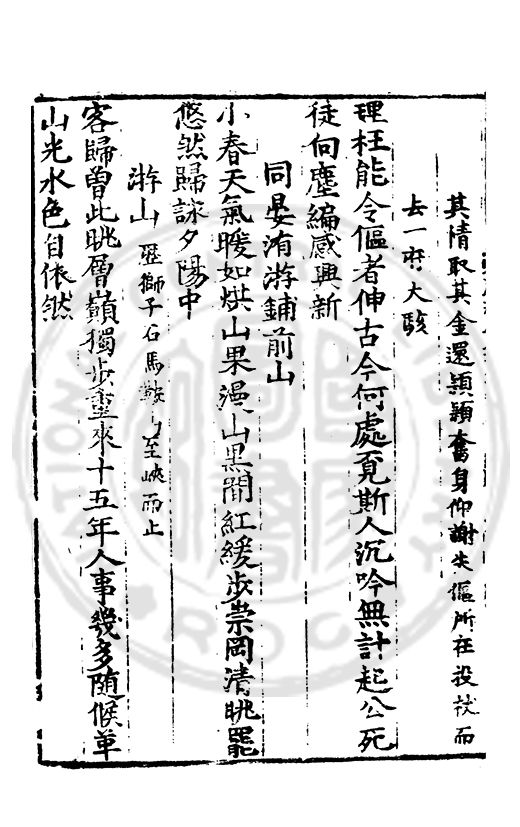 其情取其金還穎穎奮身仰謝失傴所在投杖而
去一府大駭
理枉能令傴者伸古今何處覓斯人沉吟無計起公死
徒向塵編感興新
同晏洧游鋪前山
小春天氣暖如烘山果漫山黑間紅緩步崇岡清眺罷
悠然歸詠夕陽中
游山歷獅子石馬鞍山至峽而止
客歸曾此眺層巔獨步重來十五年人事幾多隨候革
山光水色自依然